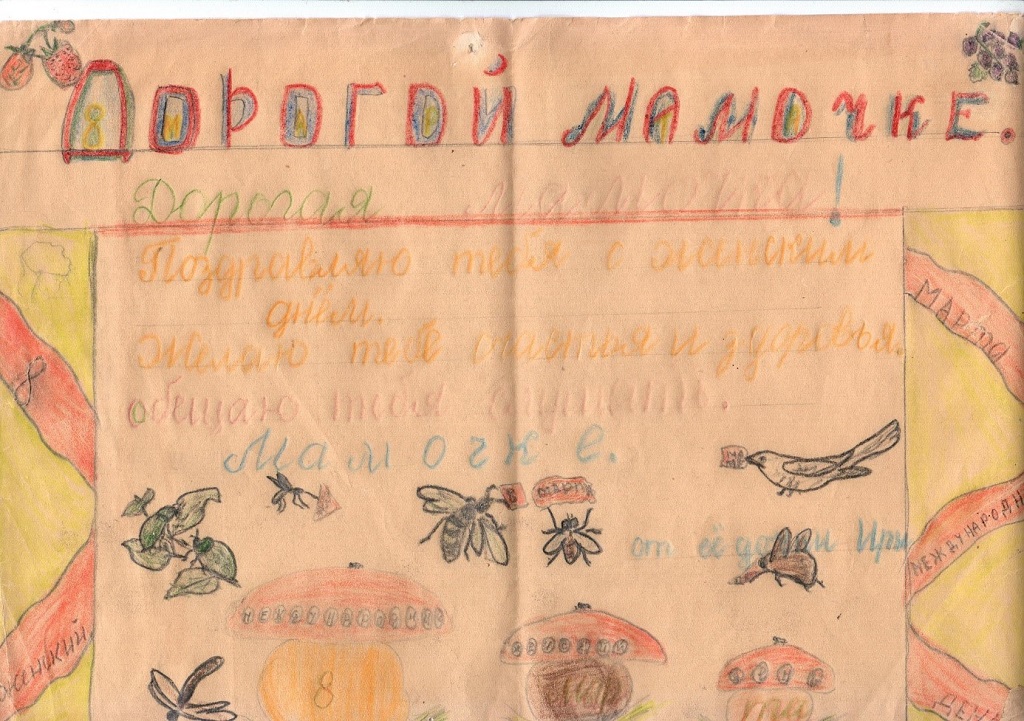 ДОРОГОЙ МАМОЧКЕ.
Дорогая мамочка!
Поздравляю тебя с женским
днём.
Желаю тебе счастья и здоровья.
обещаю тебя слушать.
Мамочке.
от её дочки Иры
8
МАРТА
МЕЖДУНАРОДН
ЖЕНСКИЙ
ДЕНЬ
МЕЖДУНАРОДНЫЙ
ЖЕНСКИЙ
ДЕНЬ
8
мар
та